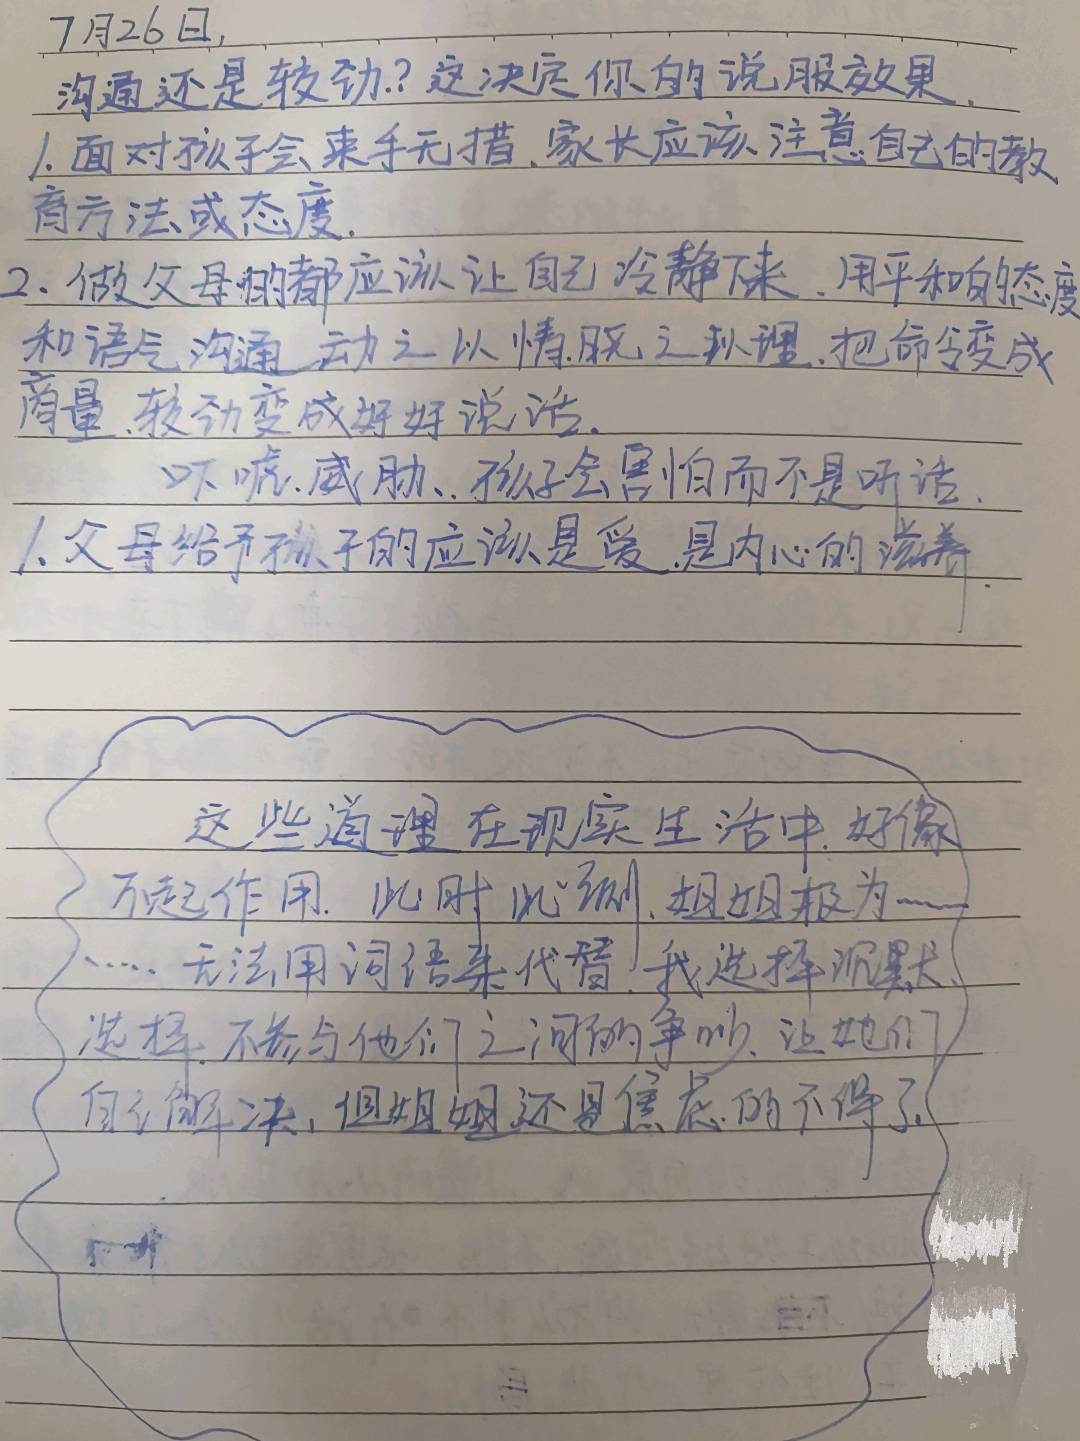 7月26日,
沟通还是较劲?这决定你的说服效果.
1.面对孩子会束手无措.家长应该注意自己的教
育方法或态度.
2.做父母的都应该让自己冷静下来.用平和的态度
和语气沟通 动之以情.晓之以理.把命令变成
商量.较劲变成好好说话.
吓唬.威胁..孩子会害怕而不是听话.
1.父母给予孩子的应该是爱.是内心的滋养.
这些道理在现实生活中.好像
不起作用.此时此刻.姐姐极为……
……无法用词语来代替.我选择沉默.
选择.不参与他们之间的争吵.让她们
自己解决,但姐姐还是焦虑的不得了.